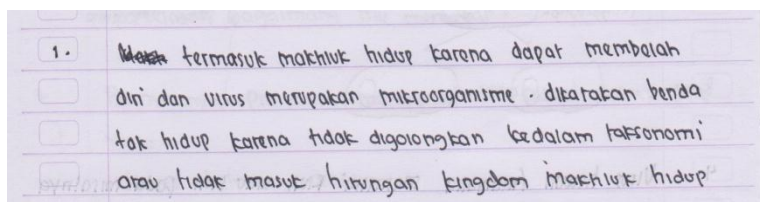 1. termasuk makhluk hidup karena dapat membelah
diri dan virus merupakan mikroorganisme. dikatakan benda
tak hidup karena tidak digolongkan kedalam taksonomi
atau tidak masuk hitungan kingdom makhluk hidup